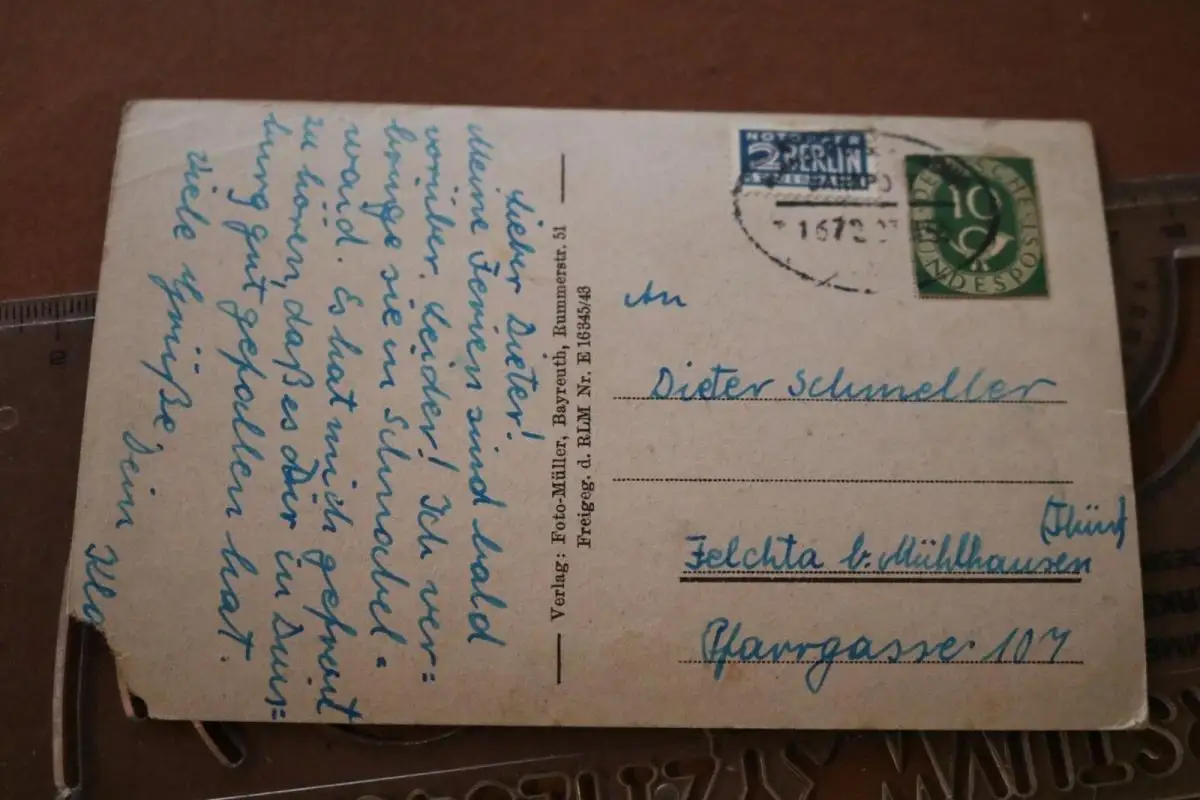 Lieber Dieter!
Meine Ferien sind bald
vorüber. Leider! Ich ver=
bringe sie in Schnabel=
waid. Es hat mich gefreut
zu hören, daß es Dir in Duis=
burg gut gefallen hat.
Viele Grüße
Dein Kla
Verlag: Foto-Müller, Bayreuth, Rummerstr. 51
Freigeg. d. RLM Nr. E 16345/43
NOTOPFER
2 BERLIN
STEUERMARKE
BAHNPO
DEUTSCHE
10
BUNDESPOST
An
Dieter Schmeller
(Thür)
Felchta b. Mühlhausen
Pfarrgasse 107